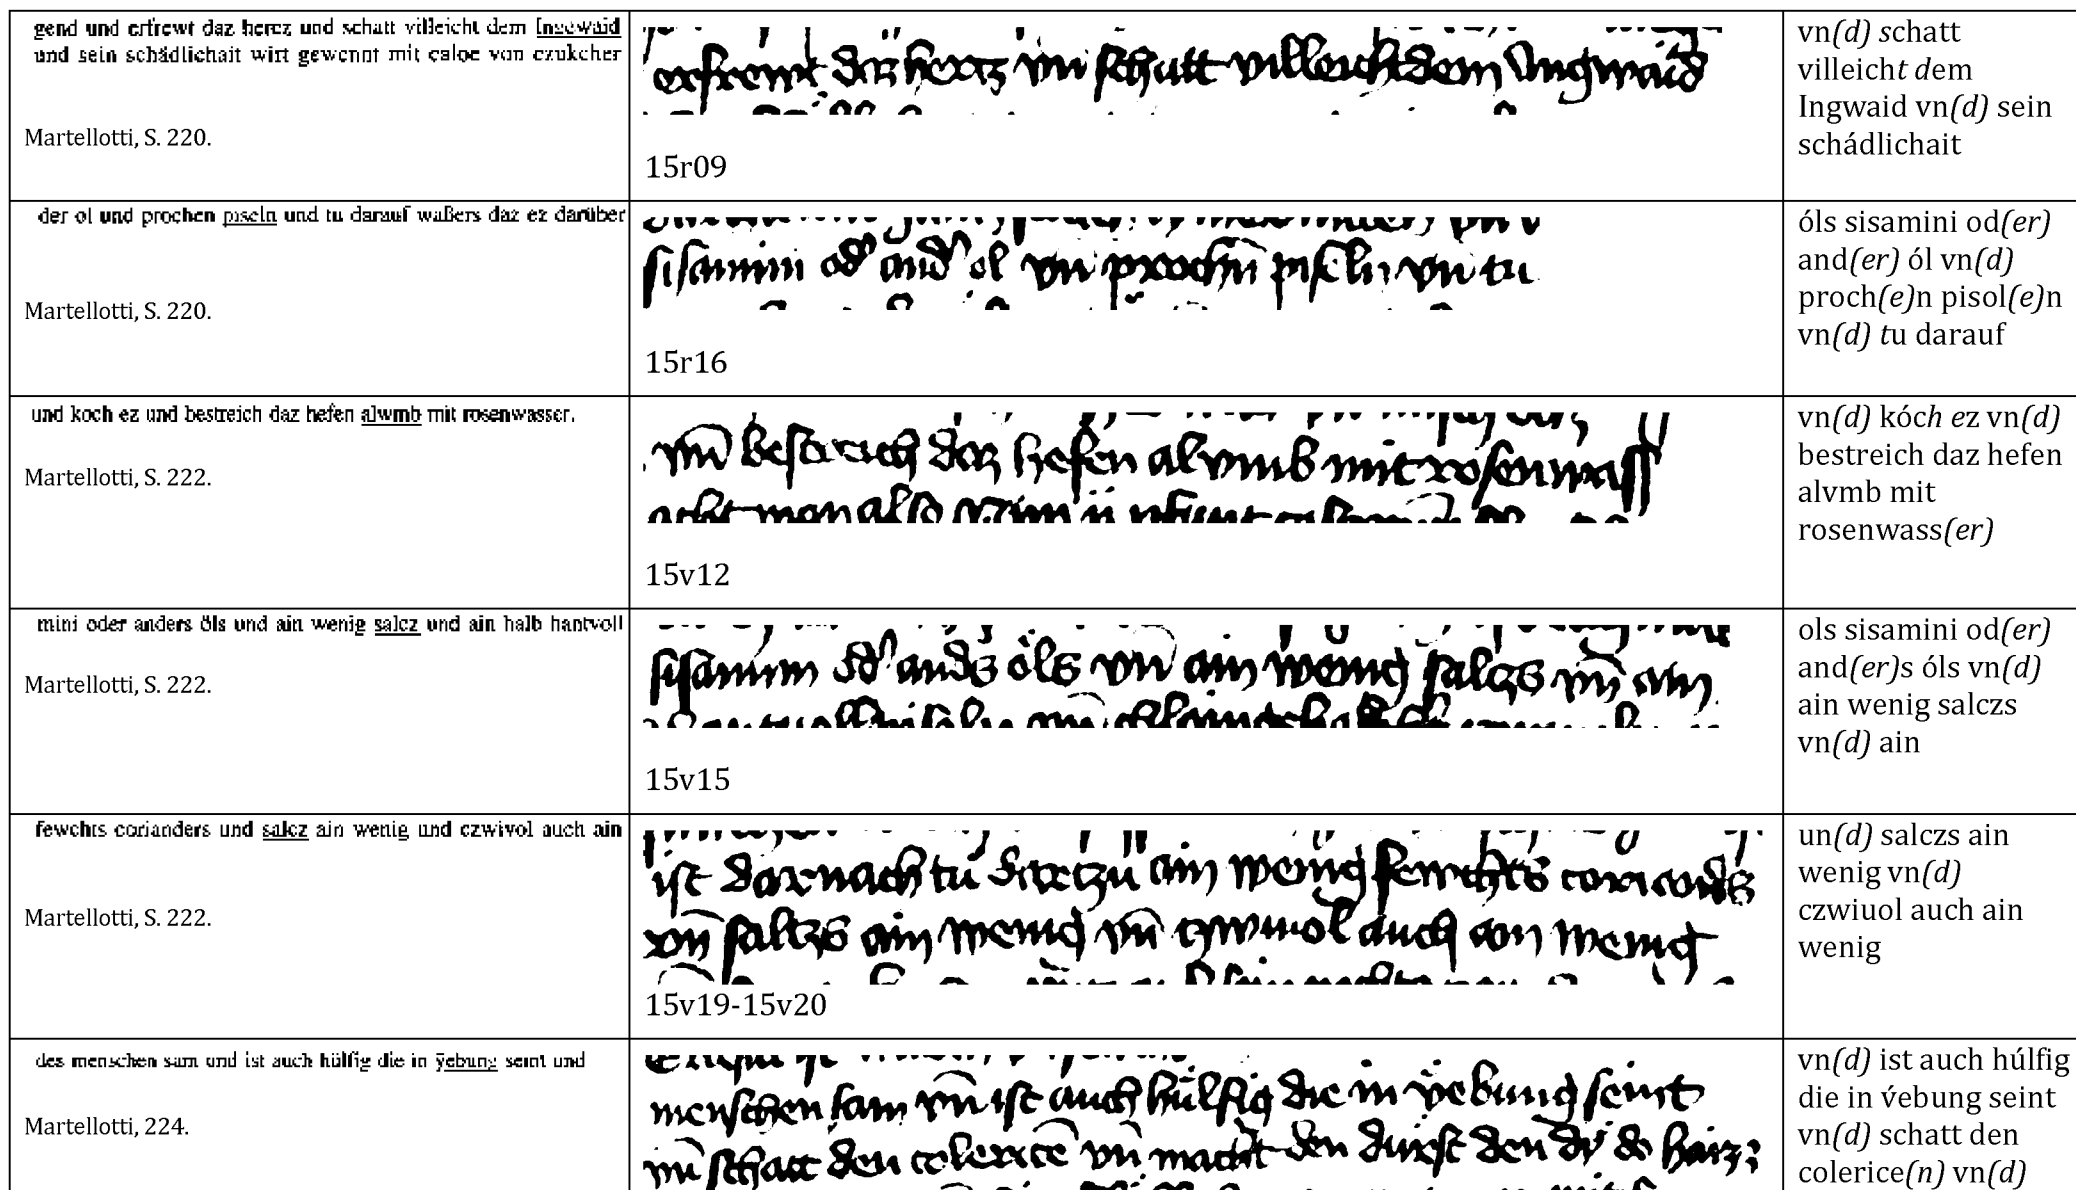 gend und erfrewt daz hercz und schatt villeicht dem Ingwaid
und sein schädlichait wirt gewennt mit caloe von czukcher
Martellotti, S. 220.
erfrewt daz hertz vn schatt villeicht dem Ingwaid
15r09
vn(d) schatt
villeicht dem
Ingwaid vn(d) sein
schádlichait
der ol und prochen piseln und tu darauf waßers daz ez darüber
Martellotti, S. 220.
sisamini od and ol vn prochn piseln vn tu
15r16
óls sisamini od(er)
and(er) ól vn(d)
proch(e)n pisol(e)n
vn(d) tu darauf
und koch ez und bestreich daz hefen alwmb mit rosenwasser.
Martellotti, S. 222.
vn bestreich daz hefen alvmb mit rosenwass
15v12
vn(d) kóch ez vn(d)
bestreich daz hefen
alvmb mit
rosenwass(er)
mini oder anders öls und ain wenig salcz und ain halb hantvoll
Martellotti, S. 222.
sisamini od ands öls vn ain wenig salczs vn ain
15v15
ols sisamini od(er)
and(er)s óls vn(d)
ain wenig salczs
vn(d) ain
fewchts corianders und salcz ain wenig und czwivol auch ain
Martellotti, S. 222.
ist darnach tu dartzu ain wenig fewchts coriands
vn salczs ain wenig vn czwiuol auch ain wenig
15v19-15v20
un(d) salczs ain
wenig vn(d)
czwiuol auch ain
wenig
des menschen sam und ist auch hülfig die in ÿebung seint und
Martellotti, 224.
menschen sam vn ist auch hülfig die in ÿebung seint
vn schatt den colerice vn macht den durst den dÿ do haiz
vn(d) ist auch húlfig
die in v́ebung seint
vn(d) schatt den
colerice(n) vn(d)